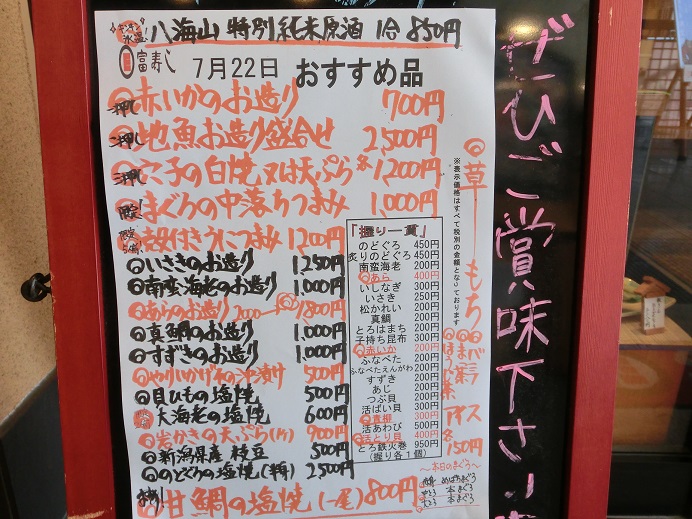 キンキン氷温! 八海山 特別純米原酒 1合 850円
富寿し 7月22日 おすすめ品
一押し 赤いかのお造り 700円
二押し 地魚お造り盛合せ 2,500円
三押し 穴子の白焼又は天ぷら 各1,200円
まぐろの中落ちつまみ 1,000円
殻付きうにつまみ 1200円
いさきのお造り 1,250円
南蛮海老のお造り 1,000円
あらのお造り 2000→1800円
真鯛のお造り 1,000円
すずきのお造り 1,000円
やりいかげその沖漬け 500円
貝ひもの塩焼 500円
大海老の塩焼 600円
岩かきの天ぷら(ハーフ) 900円
新潟県産 枝豆 500円
のどぐろの塩焼(半身) 2,500円
甘鯛の塩焼(一尾) 800円
「握り一貫」
のどぐろ 450円
炙りのどぐろ 450円
南蛮海老 400円
あら 400円
いしなぎ 300円
いさき 250円
松かれい 200円
真鯛 200円
とろはまち 200円
子持ち昆布 300円
赤いか 200円
ふなべた 200円
ふなべたえんがわ 200円
すずき 200円
あじ 200円
つぶ貝 200円
活ばい貝 300円
活あわび 500円
活とり貝 400円
とろ鉄火巻 950円
(握り各1個)
※表示価格はすべて税別の金額となっております
草もち
バニラ
抹茶
ほうじ茶
アイス
各150円
～本日のまぐろ～
赤身 めばちまぐろ
中とろ 本まぐろ
大とろ 本まぐろ
ぜひご賞味下さい